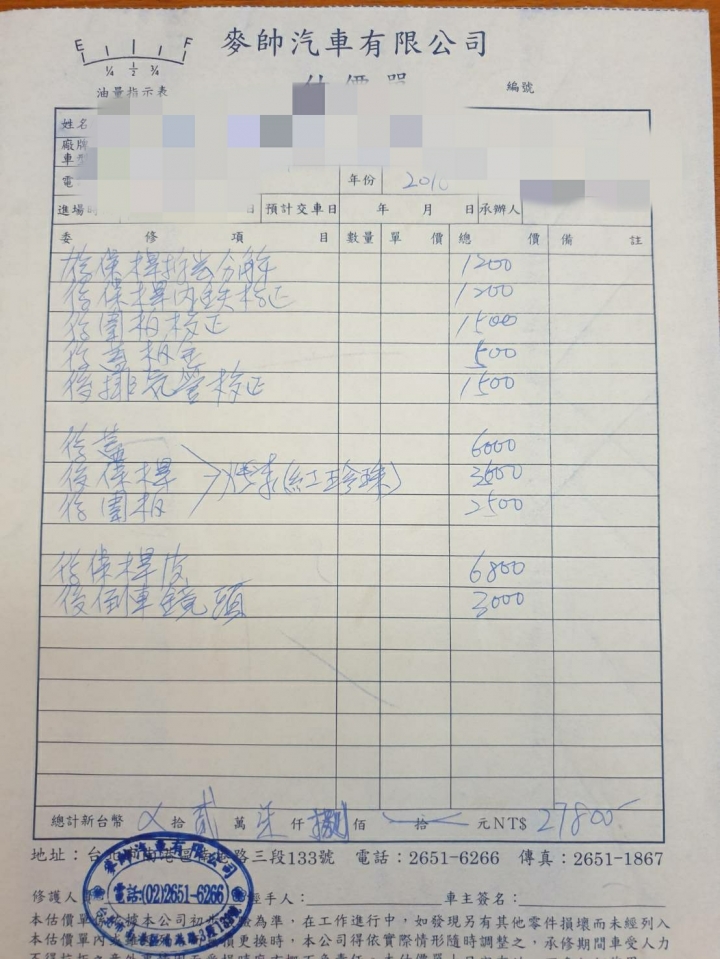 E F
¼ ½ ¾
油量指示表
麥帥汽車有限公司
估價單
編號
姓名
廠牌
車型
電
年份 2010
進場時 日 預計交車日 年 月 日 承辦人
委修項目 數量 單價 總價 備註
後保桿拆裝分解 1200
後保桿內鉄校正 1200
後圍板校正 1500
後蓋板金 500
後排气管校正 1500
後蓋 6000
後保桿 烤漆(紅珍珠) 3600
後圍板 2500
後保桿皮 6800
後倒車鏡頭 3000
總計新台幣 拾貳萬柒仟捌佰 拾 元NT$ 27800
地址：台北市南港區 路三段133號 電話：2651-6266 傳真：2651-1867
麥帥汽車有限公司
電話:(02)2651-6266
修護人 經手人： 車主簽名：
本估價單 據本公司初步 為準，在工作進行中，如發現另有其他零件損壞而未經列入
本估價單內 損更換時，本公司得依實際情形隨時調整之，承修期間車受人力